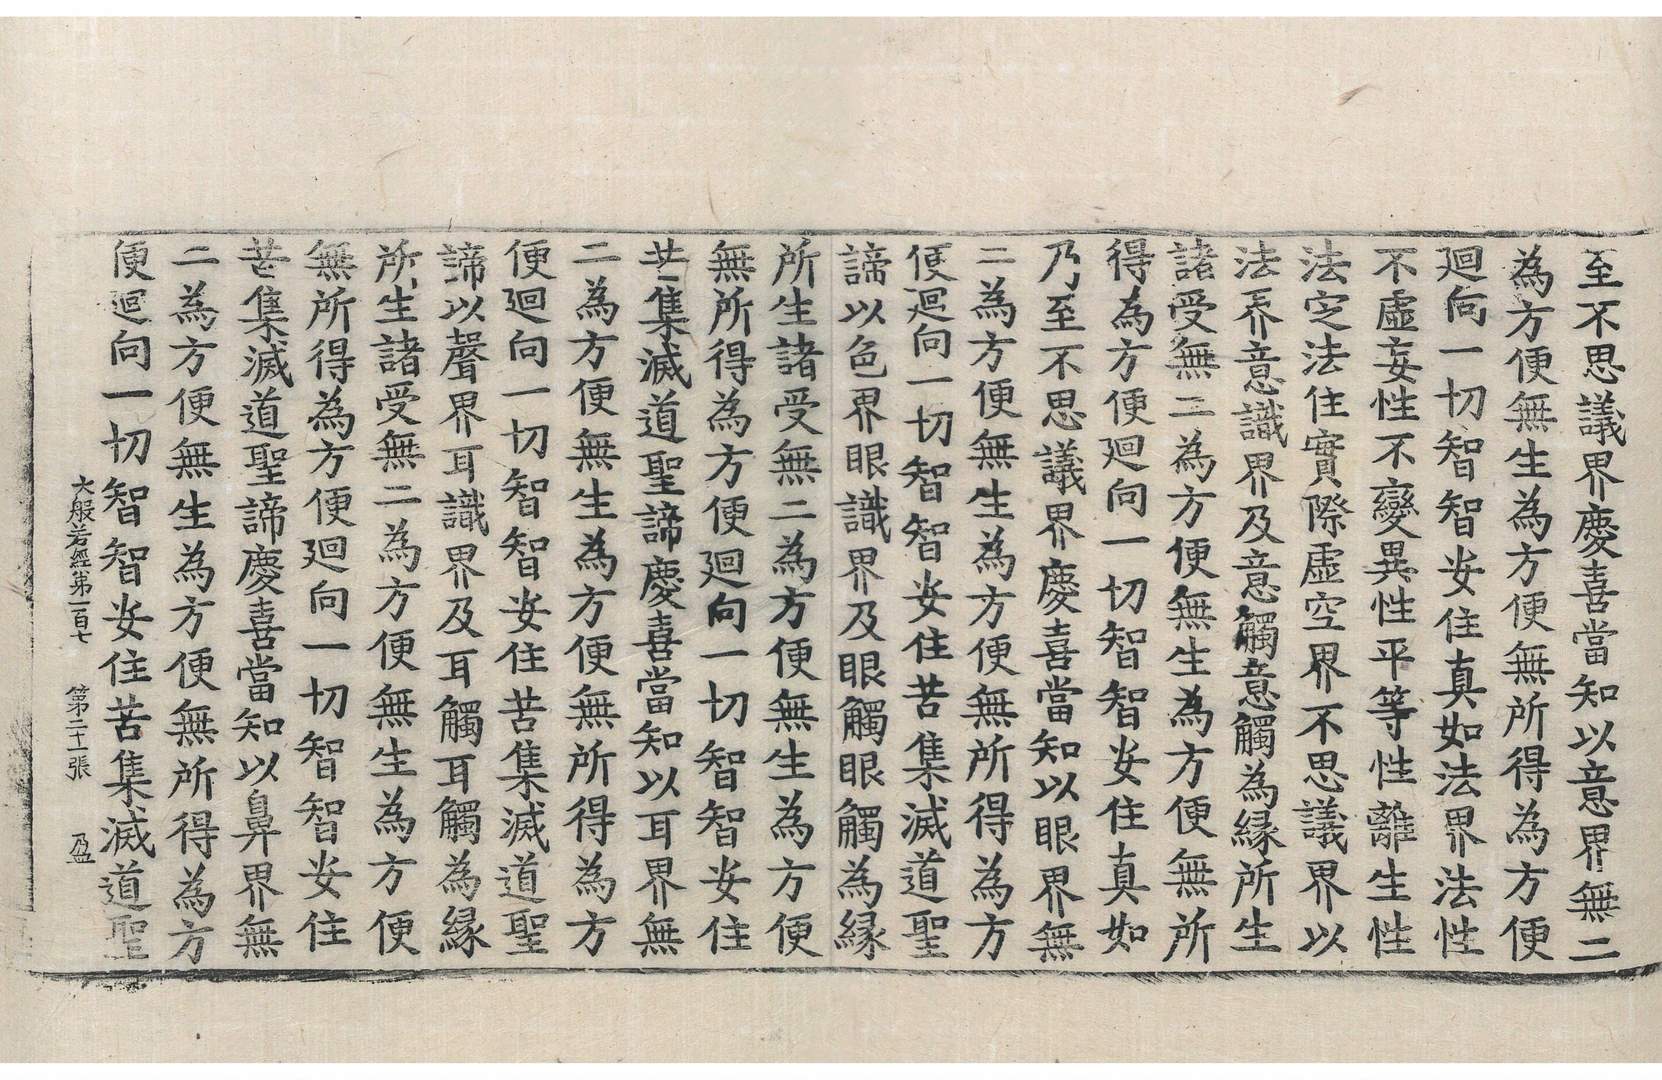 至不思議界慶喜當知以意界無二
為方便無生為方便無所得為方便
廻向一切智智安住真如法界法性
不虛妄性不變異性平等性離生性
法定法住實際虛空界不思議界以
法界意識界及意觸意觸為緣所生
諸受無二為方便無生為方便無所
得為方便廻向一切智智安住真如
乃至不思議界慶喜當知以眼界無
二為方便無生為方便無所得為方
便廻向一切智智安住苦集滅道聖
諦以色界眼識界及眼觸眼觸為緣
所生諸受無二為方便無生為方便
無所得為方便廻向一切智智安住
苦集滅道聖諦慶喜當知以耳界無
二為方便無生為方便無所得為方
便廻向一切智智安住苦集滅道聖
諦以聲界耳識界及耳觸耳觸為緣
所生諸受無二為方便無生為方便
無所得為方便廻向一切智智安住
苦集滅道聖諦慶喜當知以鼻界無
二為方便無生為方便無所得為方
便廻向一切智智安住苦集滅道聖
大般若經第一百七 第二十一張 盈